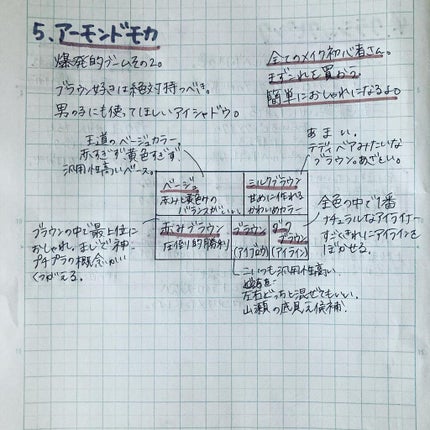 5、アーモンドモカ
爆発的ブームその2。
ブラウン好きは絶対持つべき。
男の子にも使ってほしいアイシャドウ。
全てのメイク初心者さん。
まずこれを買おう。
簡単におしゃれになるよ。
王道のベージュカラー
赤すぎず、黄色すぎず
汎用性高いベース。
あまい。
テディベアみたいな
ブラウン。あざとい。
ベージュ
赤みと黄みの
バランスがいい。
ミルクブラウン
甘めに作れる
かわいめカラー
ブラウンの中で最上位に
おしゃれ。まじで神。
プチプラの概念がい
くつがえる。
赤みブラウン
圧倒的勝利
ブラウン
(アイブロウ)
ダーク
ブラウン
(アイライン)
全色の中で1番
ナチュラルなアイライナー
すごくきれいにアイラインを
ぼかせる。
こいつも汎用性高い。
左右どっちと混ぜてもいい。
山瀬の底見え候補。